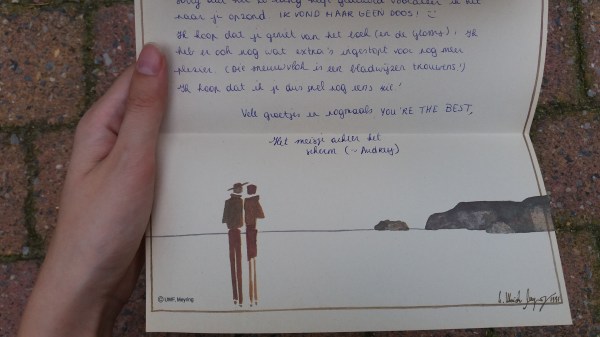 naar je opzond. IK VOND MAAR GEEN DOOS!
Ik hoop dat je geniet van het boek (en de glossy). Ik
heb er ook nog wat extra's ingestopt voor nog meer
plezier. (Die is een bladwijzer trouwens!)
Ik hoop dat ik je dus wel nog eens zie!
Vele groetjes en nogmaals YOU'RE THE BEST,
-Het meisje achter het
scherm (~Audrey)
© UWP, Meyling
1991